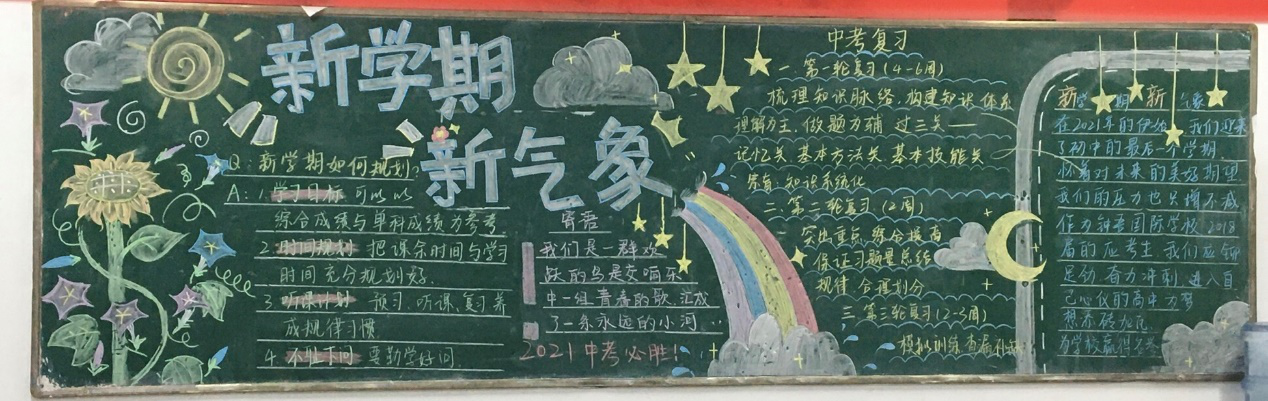 新学期
新气象
Q：新学期如何规划？
A：1.学习目标 可以以
综合成绩与单科成绩为参考
2.时间规划 把课余时间与学习
时间充分规划好.
3.听课计划 预习、听课、复习养
成规律习惯
4.不耻下问 要勤学好问.
寄语
我们是一群欢
跃的鸟是交响乐
中一组青春的歌,汇成
了一条永远的小河...
2021中考必胜！
中考复习
一.第一轮复习（4-6周）
梳理知识脉络,构建知识体系
理解为主,做题为辅 过三关——
记忆关.基本方法关.基本技能关
知识系统化
二.第二轮复习（2周）
突出重点 综合提高
保证习题量 总结
规律 合理划分
三.第三轮复习（2-3周）
模拟训练 查漏补缺
新学期 新气象
在2021年的伊始,我们迎来
了初中的最后一个学期.
怀着对未来的美好期望
我们的压力也只增不减
作为 国际学校2018
届的应考生,我们应铆
足劲,奋力冲刺,进入自
己心仪的高中,为梦
想添砖加瓦.
为学校赢得